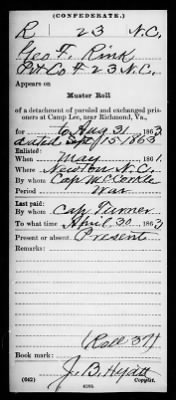 (CONFEDERATE.)
R 23 N.C.
Geo F. Rink
Pvt Co F 23 N.C.
Appears on
Muster Roll
of a detachment of paroled and exchanged pris-
oners at Camp Lee, near Richmond, Va.,
for to Aug 31, 1863
dated Sept 15 1863
Enlisted:
When May 1861.
Where Newton N.C.
By whom Cap McCorkle
Period War
Last paid:
By whom Cap Turner
To what time April 30 1863
Present or absent Present
Remarks:
(Roll 37)
Book mark:
J. B. Hyatt
(642) Copyist.